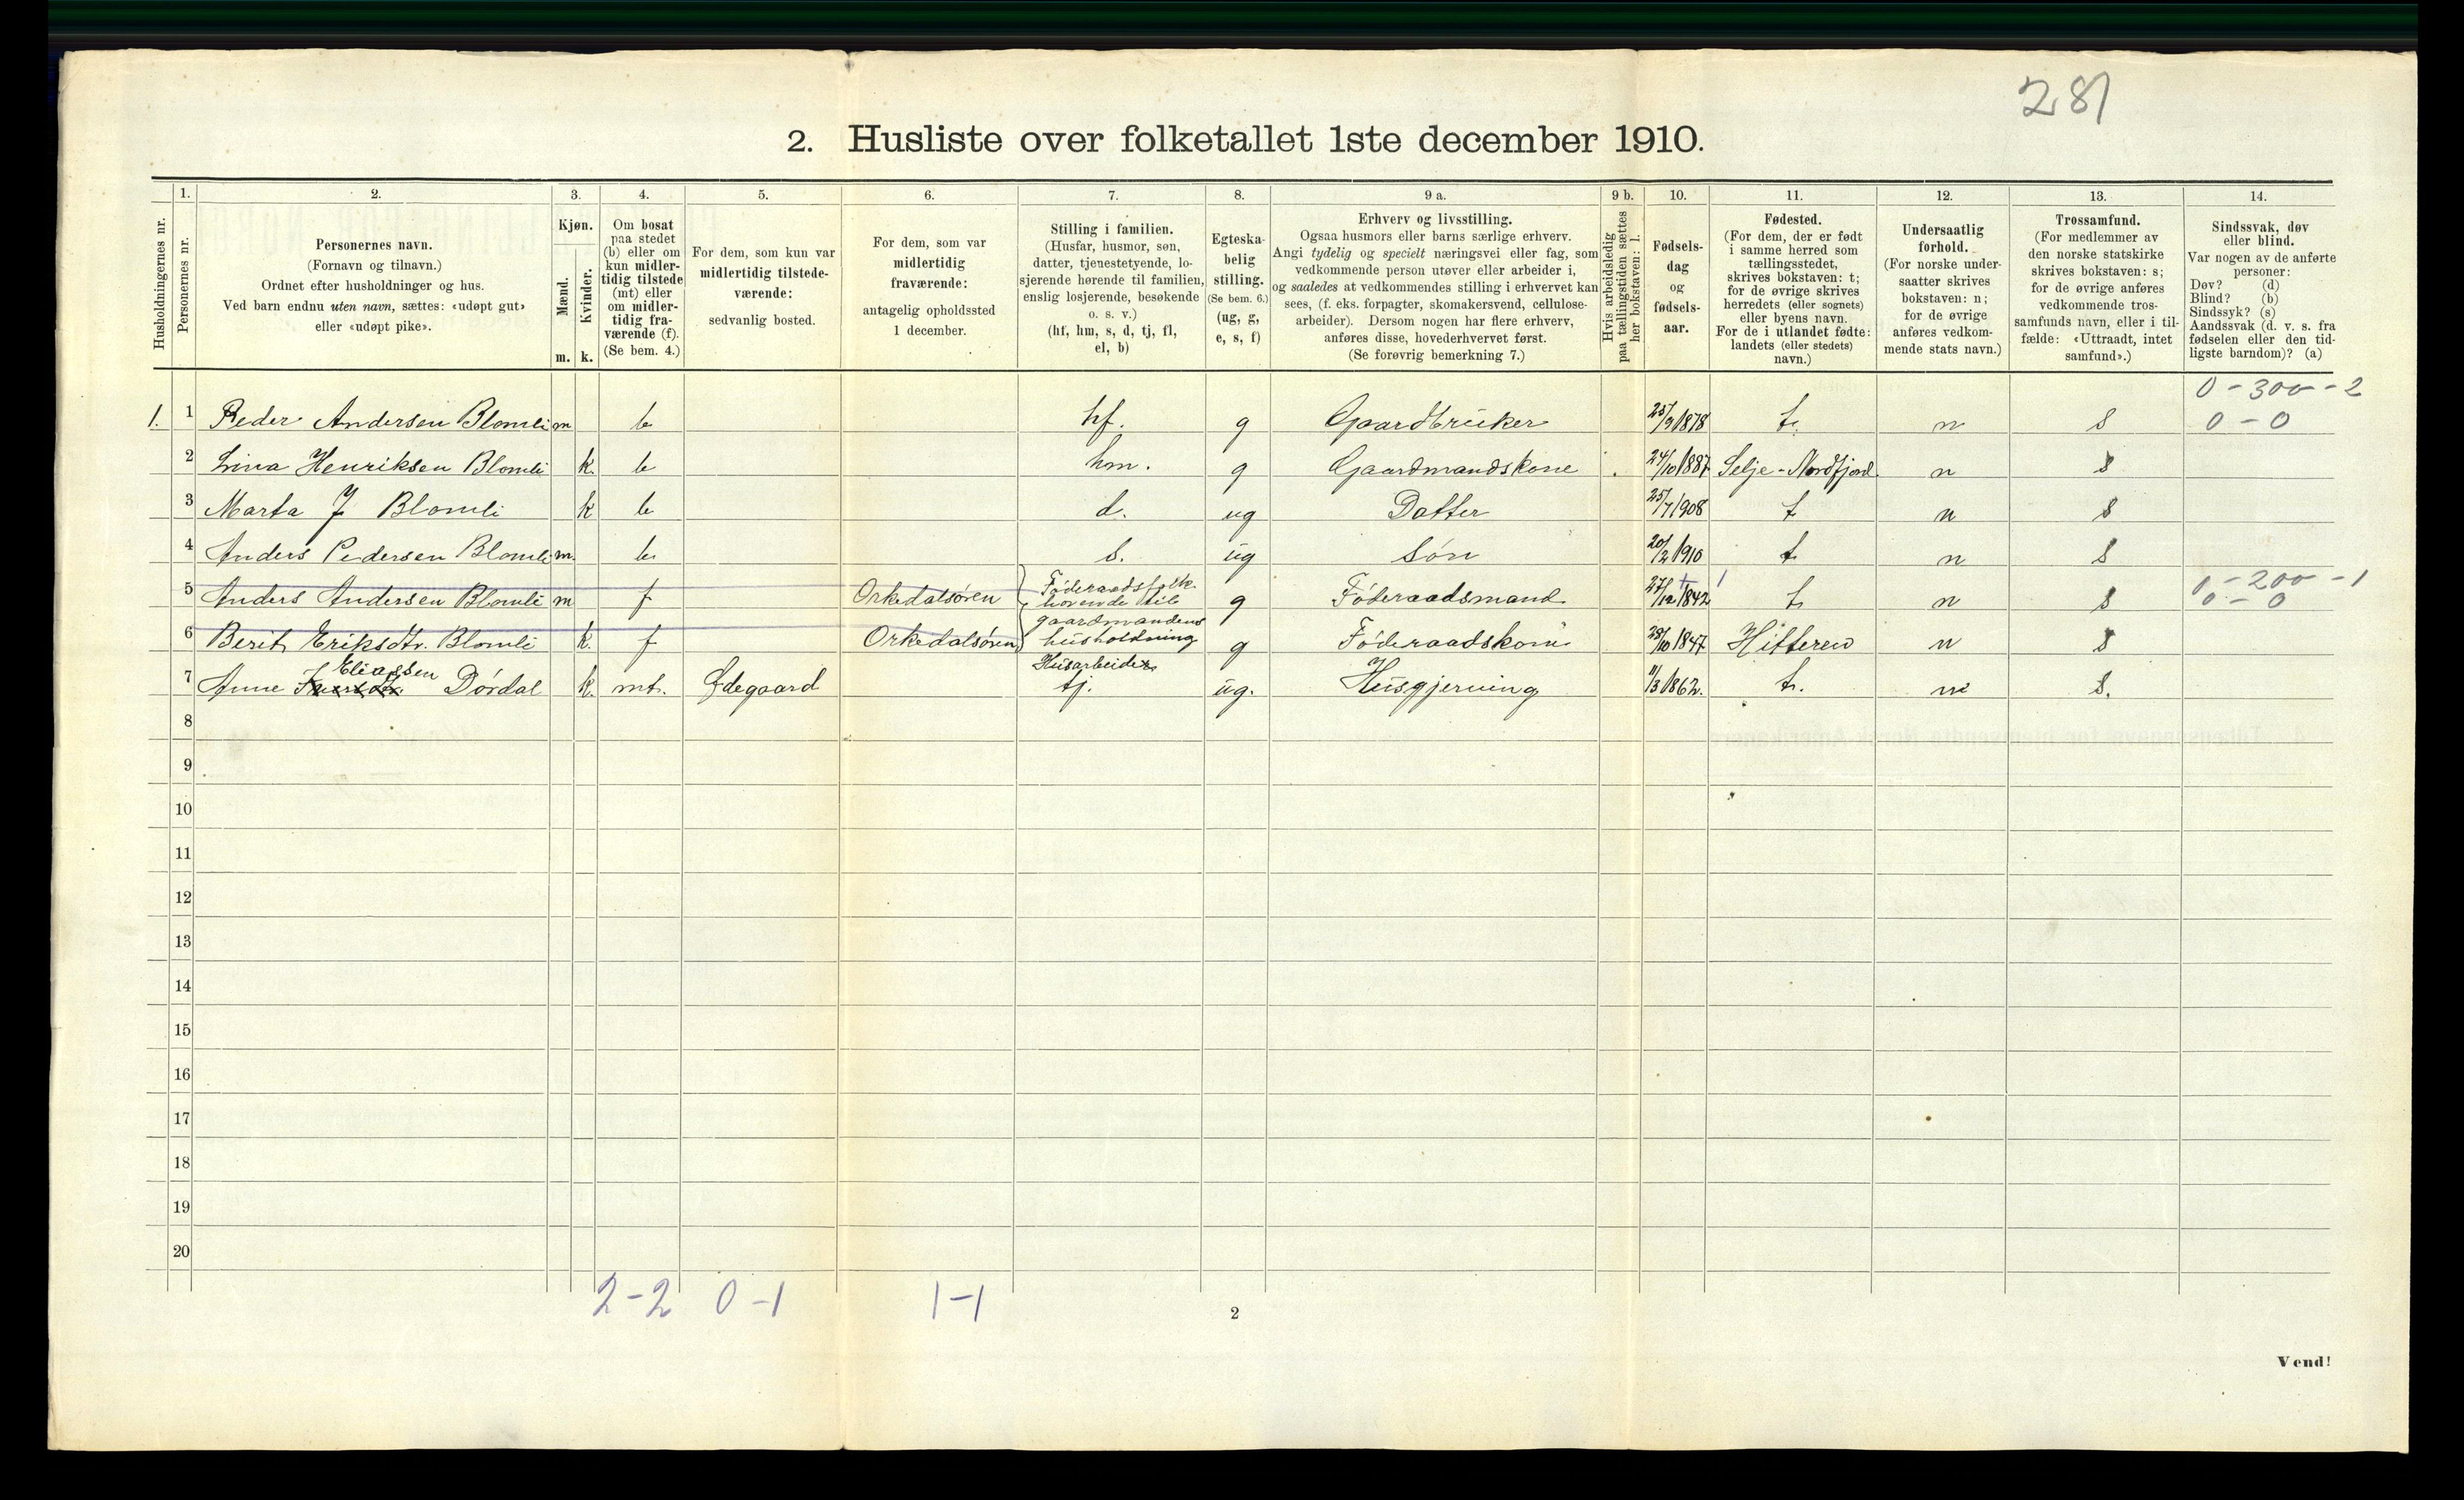 281
2. Husliste over folketallet 1ste december 1910.
Husholdningernes nr.
1.
Personernes nr.
2.
Personernes navn.
(Fornavn og tilnavn.)
Ordnet efter husholdninger og hus.
Ved barn endnu uten navn, sættes: «udøpt gut»
eller «udøpt pike».
3.
Kjøn.
Mænd.
Kvinder.
m. k.
4.
Om bosat
paa stedet
(b) eller om
kun midler-
tidig tilstede
(mt) eller
om midler-
tidig fra-
værende (f).
(Se bem. 4.)
5.
For dem, som kun var
midlertidig tilstede-
værende:
sedvanlig bosted.
6.
For dem, som var
midlertidig
fraværende:
antagelig opholdssted
1 december.
7.
Stilling i familien.
(Husfar, husmor, søn,
datter, tjenestetyende, lo-
sjerende hørende til familien,
enslig losjerende, besøkende
o. s. v.)
(hf, hm, s, d, tj, fl,
el, b)
8.
Egteska-
belig
stilling.
(Se bem. 6.)
(ug, g,
e, s, f)
9 a.
Erhverv og livsstilling.
Ogsaa husmors eller barns særlige erhverv.
Angi tydelig og specielt næringsvei eller fag, som
vedkommende person utøver eller arbeider i,
og saaledes at vedkommendes stilling i erhvervet kan
sees, (f. eks. forpagter, skomakersvend, cellulose-
arbeider). Dersom nogen har flere erhverv,
anføres disse, hovederhvervet først.
(Se forøvrig bemerkning 7.)
9 b.
Hvis arbeidsledig
paa tællingstiden sættes
her bokstaven: l.
10.
Fødsels-
dag
og
fødsels-
aar.
11.
Fødested.
(For dem, der er født
i samme herred som
tællingsstedet,
skrives bokstaven: t;
for de øvrige skrives
herredets (eller sognets)
eller byens navn.
For de i utlandet fødte:
landets (eller stedets)
navn.)
12.
Undersaatlig
forhold.
(For norske under-
saatter skrives
bokstaven: n;
for de øvrige
anføres vedkom-
mende stats navn.)
13.
Trossamfund.
(For medlemmer av
den norske statskirke
skrives bokstaven: s;
for de øvrige anføres
vedkommende tros-
samfunds navn, eller i til-
fælde: «Uttraadt, intet
samfund».)
14.
Sindssvak, døv
eller blind.
Var nogen av de anførte
personer:
Døv? (d)
Blind? (b)
Sindssyk? (s)
Aandssvak (d. v. s. fra
fødselen eller den tid-
ligste barndom)? (a)
0 - 300 - 2
1. 1 Peder Andersen Blomli m b hf. g Gaardbruker 25/9 1878 t. n s 0 - 0
2 Lina Henriksen Blomli k. b hm. g Gaardmandskone 24/10 1887 Selje - Nordfjord n s
3 Marta J Blomli k b d. ug Datter 25/7 1908 t n s
4 Anders Pedersen Blomli m. b. s. ug Søn 20/2 1910 t n s
5 Anders Andersen Blomli m f Orkedalsøren Føderaadsfolk hørende til g Føderaadsmand 27/12 1842 t. n s 0 - 200 - 1
0 - 0
6 Berit Eriksdtr. Blomli k. f Orkedalsøren gaardmandens husholdning g Føderaadskone 28/10 1847 Hitteren n s
7 Anne Eliassen Dørdal k. mt. Ødegaard Husarbeider tj. ug. Husgjerning 11/3 1862. t. n s.
8
9
10
11
12
13
14
15
16
17
18
19
20
2-2 0-1 1-1
2
Vend!